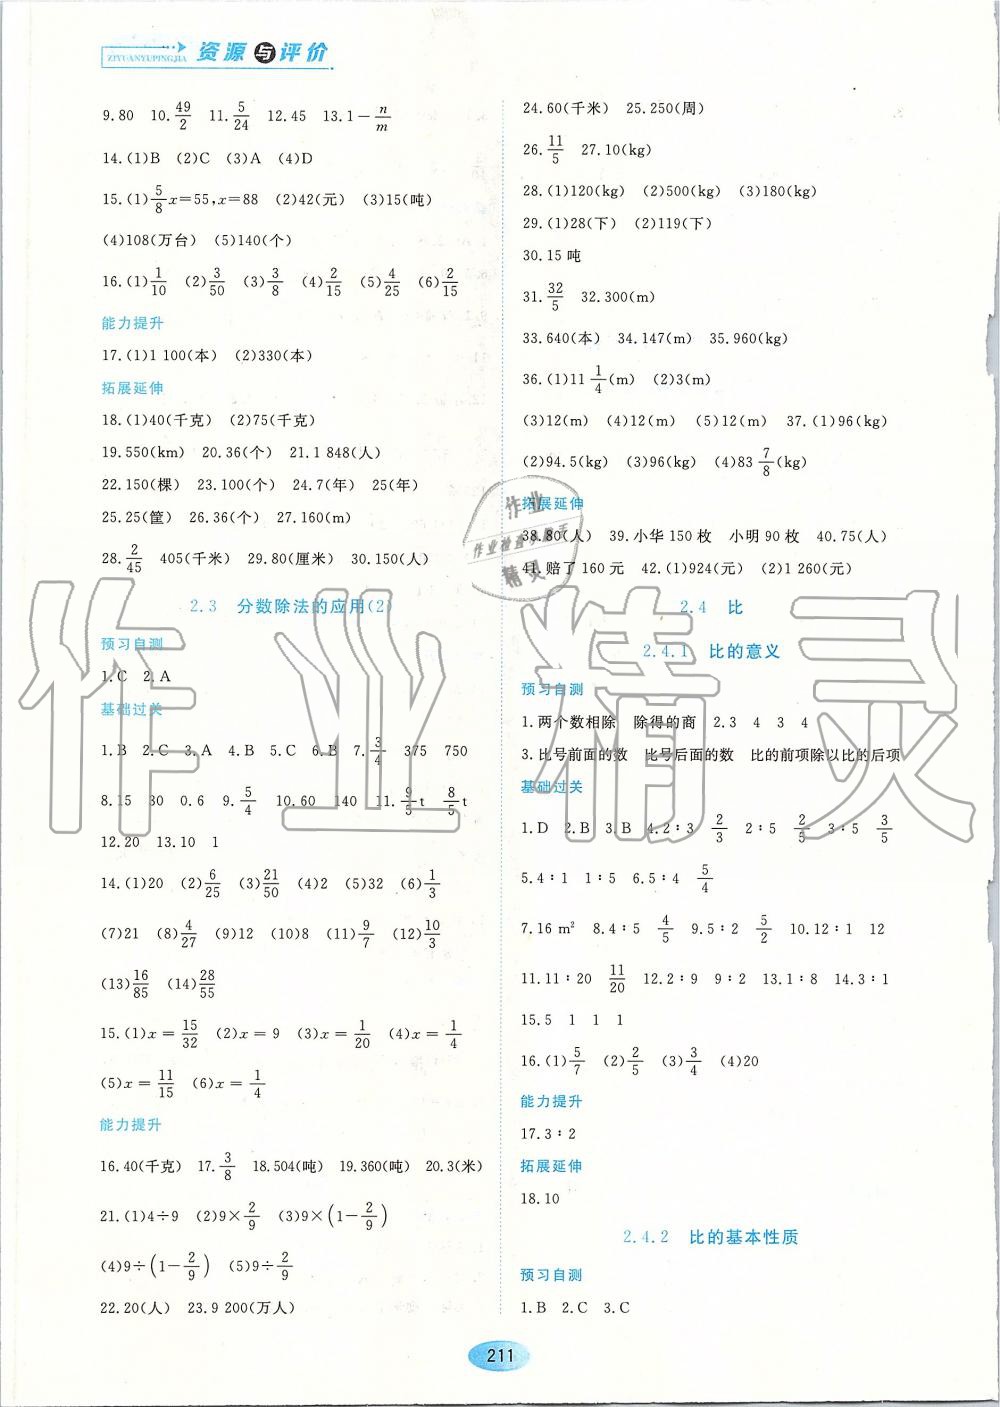 ZIYUANYUPINGJIA 资源与评价
9.80 10.49/2 11.5/24 12.45 13.1－n/m
14.(1)B (2)C (3)A (4)D
15.(1)5/8x=55,x=88 (2)42(元) (3)15(吨)
(4)108(万台) (5)140(个)
16.(1)1/10 (2)3/50 (3)3/8 (4)2/15 (5)4/25 (6)2/15
能力提升
17.(1)1 100(本) (2)330(本)
拓展延伸
18.(1)40(千克) (2)75(千克)
19.550(km) 20.36(个) 21.1 848(人)
22.150(棵) 23.100(个) 24.7(年) 25(年)
25.25(筐) 26.36(个) 27.160(m)
28.2/45 405(千米) 29.80(厘米) 30.150(人)
2.3 分数除法的应用(2)
预习自测
1.C 2.A
基础过关
1.B 2.C 3.A 4.B 5.C 6.B 7.3/4 375 750
8.15 30 0.6 9.5/4 10.60 140 11.9/5t 8/5t
12.20 13.10 1
14.(1)20 (2)6/25 (3)21/50 (4)2 (5)32 (6)1/3
(7)21 (8)4/27 (9)12 (10)8 (11)9/7 (12)10/3
(13)16/85 (14)28/55
15.(1)x=15/32 (2)x=9 (3)x=1/20 (4)x=1/4
(5)x=11/15 (6)x=1/4
能力提升
16.40(千克) 17.3/8 18.504(吨) 19.360(吨) 20.3(米)
21.(1)4÷9 (2)9×2/9 (3)9×(1－2/9)
(4)9÷(1－2/9) (5)9÷2/9
22.20(人) 23.9 200(万人)
24.60(千米) 25.250(周)
26.11/5 27.10(kg)
28.(1)120(kg) (2)500(kg) (3)180(kg)
29.(1)28(下) (2)119(下)
30.15吨
31.32/5 32.300(m)
33.640(本) 34.147(m) 35.960(kg)
36.(1)11 1/4(m) (2)3(m)
(3)12(m) (4)12(m) (5)12(m) 37.(1)96(kg)
(2)94.5(kg) (3)96(kg) (4)83 7/8(kg)
拓展延伸
38.80(人) 39.小华150枚 小明90枚 40.75(人)
41.赔了160元 42.(1)924(元) (2)1 260(元)
2.4 比
2.4.1 比的意义
预习自测
1.两个数相除 除得的商 2.3 4 3 4
3.比号前面的数 比号后面的数 比的前项除以比的后项
基础过关
1.D 2.B 3.B 4.2∶3 2/3 2∶5 2/5 3∶5 3/5
5.4∶1 1∶5 6.5∶4 5/4
7.16 m² 8.4∶5 4/5 9.5∶2 5/2 10.12∶1 12
11.11∶20 11/20 12.2∶9 9∶2 13.1∶8 14.3∶1
15.5 1 1 1
16.(1)5/7 (2)2/5 (3)3/4 (4)20
能力提升
17.3∶2
拓展延伸
18.10
2.4.2 比的基本性质
预习自测
1.B 2.C 3.C
211
作业精灵
作业
精灵